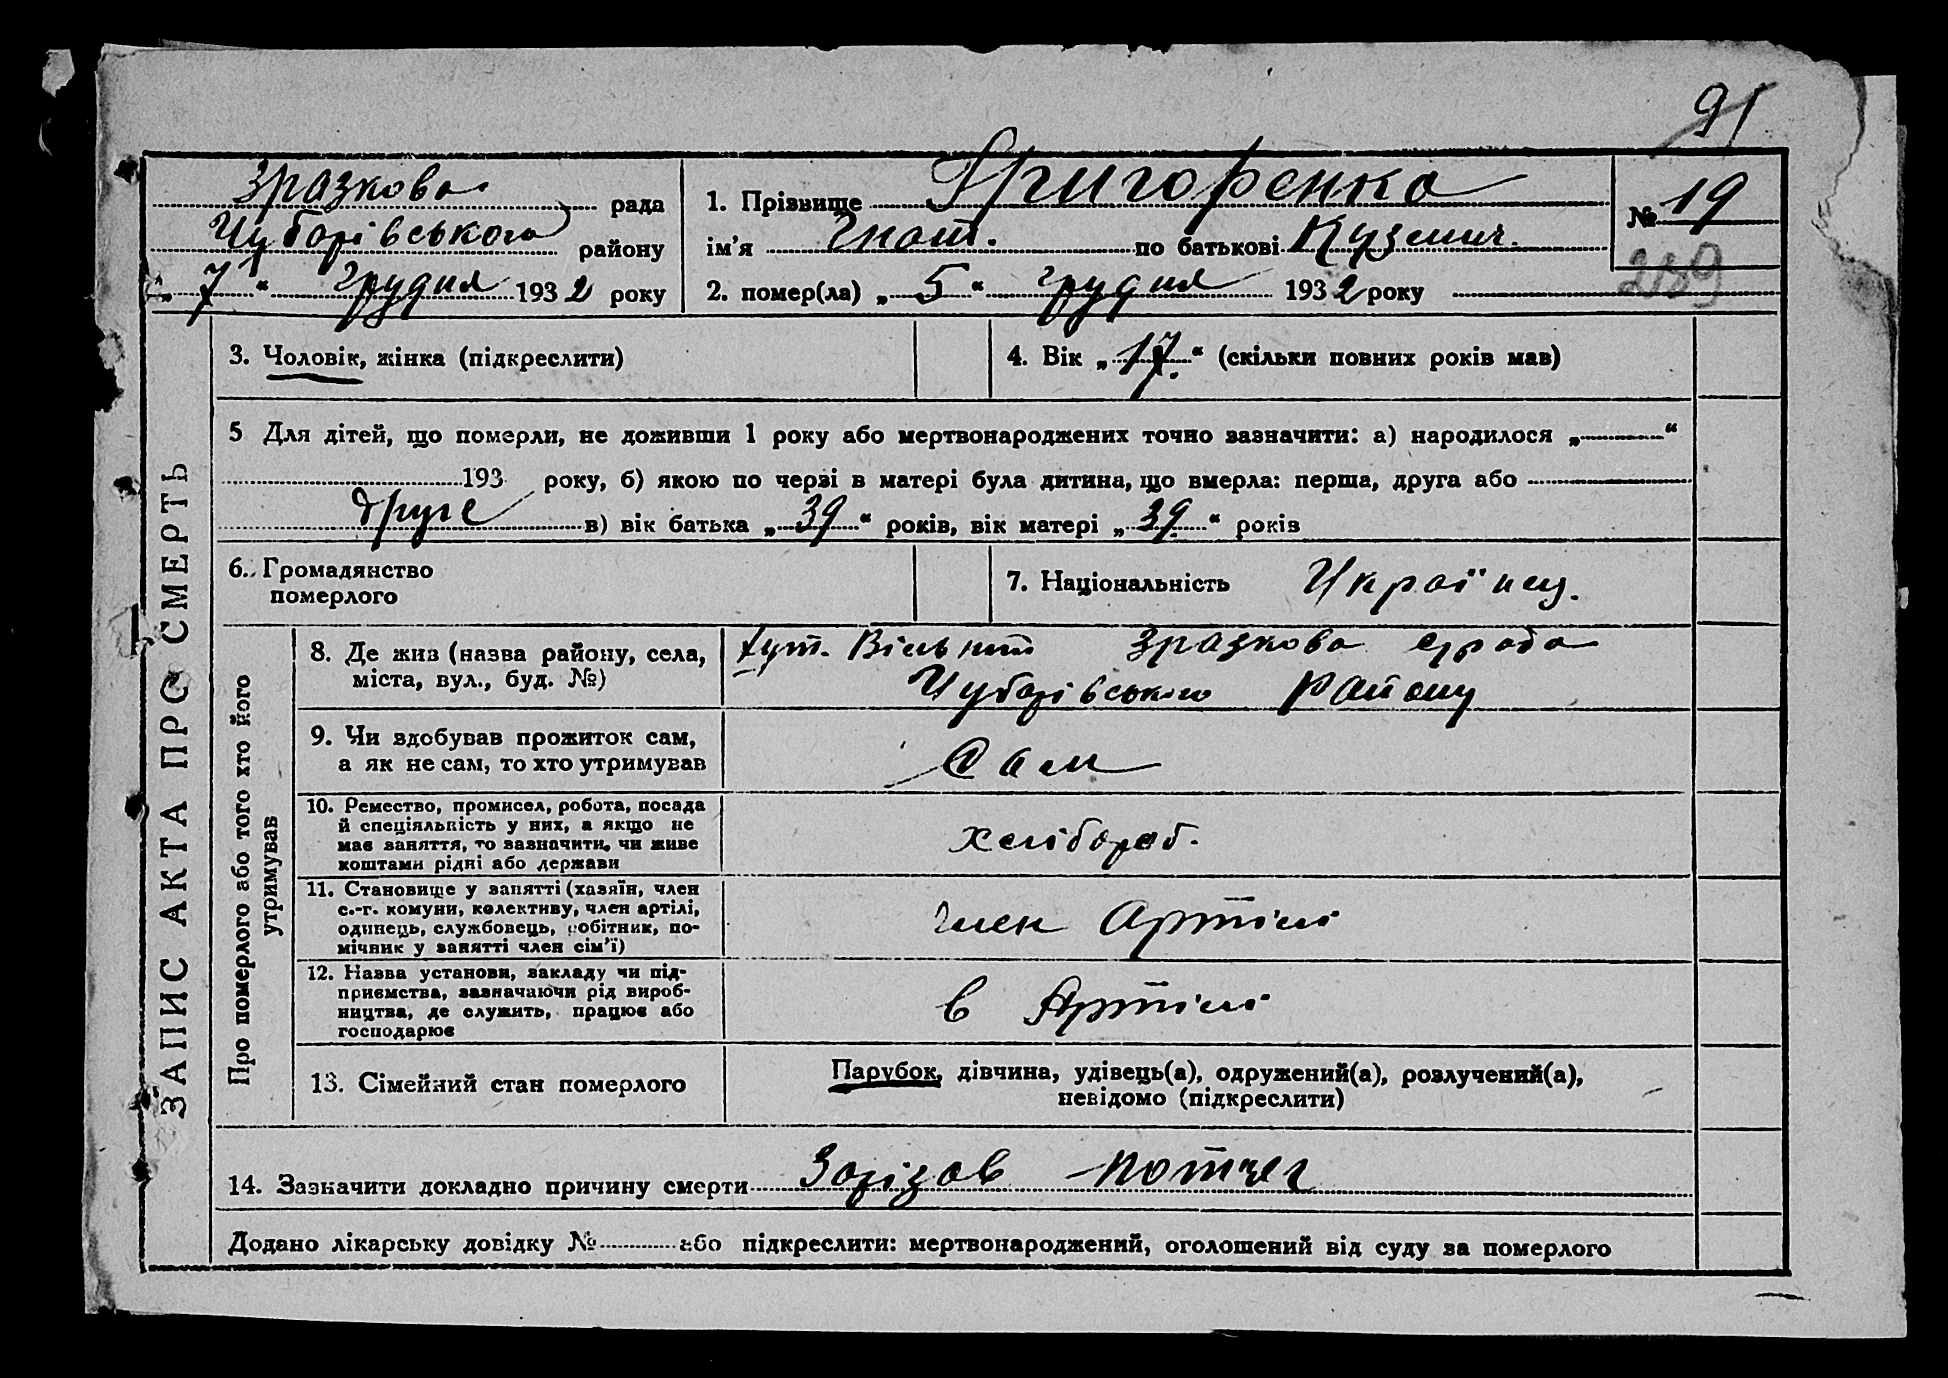 91
Зразкова рада
Чубарівського району
„ 7 “ грудня 1932 року
1. Прізвище Григоренко
ім'я Гнат. по батькові Кузьмич.
2. помер(ла) „ 5 “ грудня 1932 року
№ 19
289
ЗАПИС АКТА ПРО СМЕРТЬ
3. Чоловік, жінка (підкреслити)
4. Вік „ 17. “ (скільки повних років мав)
5 Для дітей, що померли, не доживши 1 року або мертвонароджених точно зазначити: а) народилося „ “
193 року, б) якою по черзі в матері була дитина, що вмерла: перша, друга або
друге в) вік батька „ 39 “ років, вік матері „ 39. “ років
6. Громадянство
померлого
7. Національність Українец.
Про померлого або того хто його
утримував
8. Де жив (назва району, села,
міста, вул., буд. №)
хут. Вільний Зразкова с/рада
Чубарівського Району
9. Чи здобував прожиток сам,
а як не сам, то хто утримував
Сам
10. Ремество, промисел, робота, посада
й спеціяльність у них, а якщо не
має заняття, то зазначити, чи живе
коштами рідні або держави
хлібороб.
11. Становище у занятті (хазяїн, член
с.-г. комуни, колективу, член артілі,
одинець, службовець, робітник, по-
мічник у занятті член сім'ї)
член Артілі
12. Назва установи, закладу чи під-
приємства, зазначаючи рід вироб-
ництва, де служить, працює або
господарює
в Артілі
13. Сімейний стан померлого
Парубок, дівчина, удівець(а), одружений(а), розлучений(а),
невідомо (підкреслити)
14. Зазначити докладно причину смерти Зарізав
Додано лікарську довідку № або підкреслити: мертвонароджений, оголошений від суду за померлого